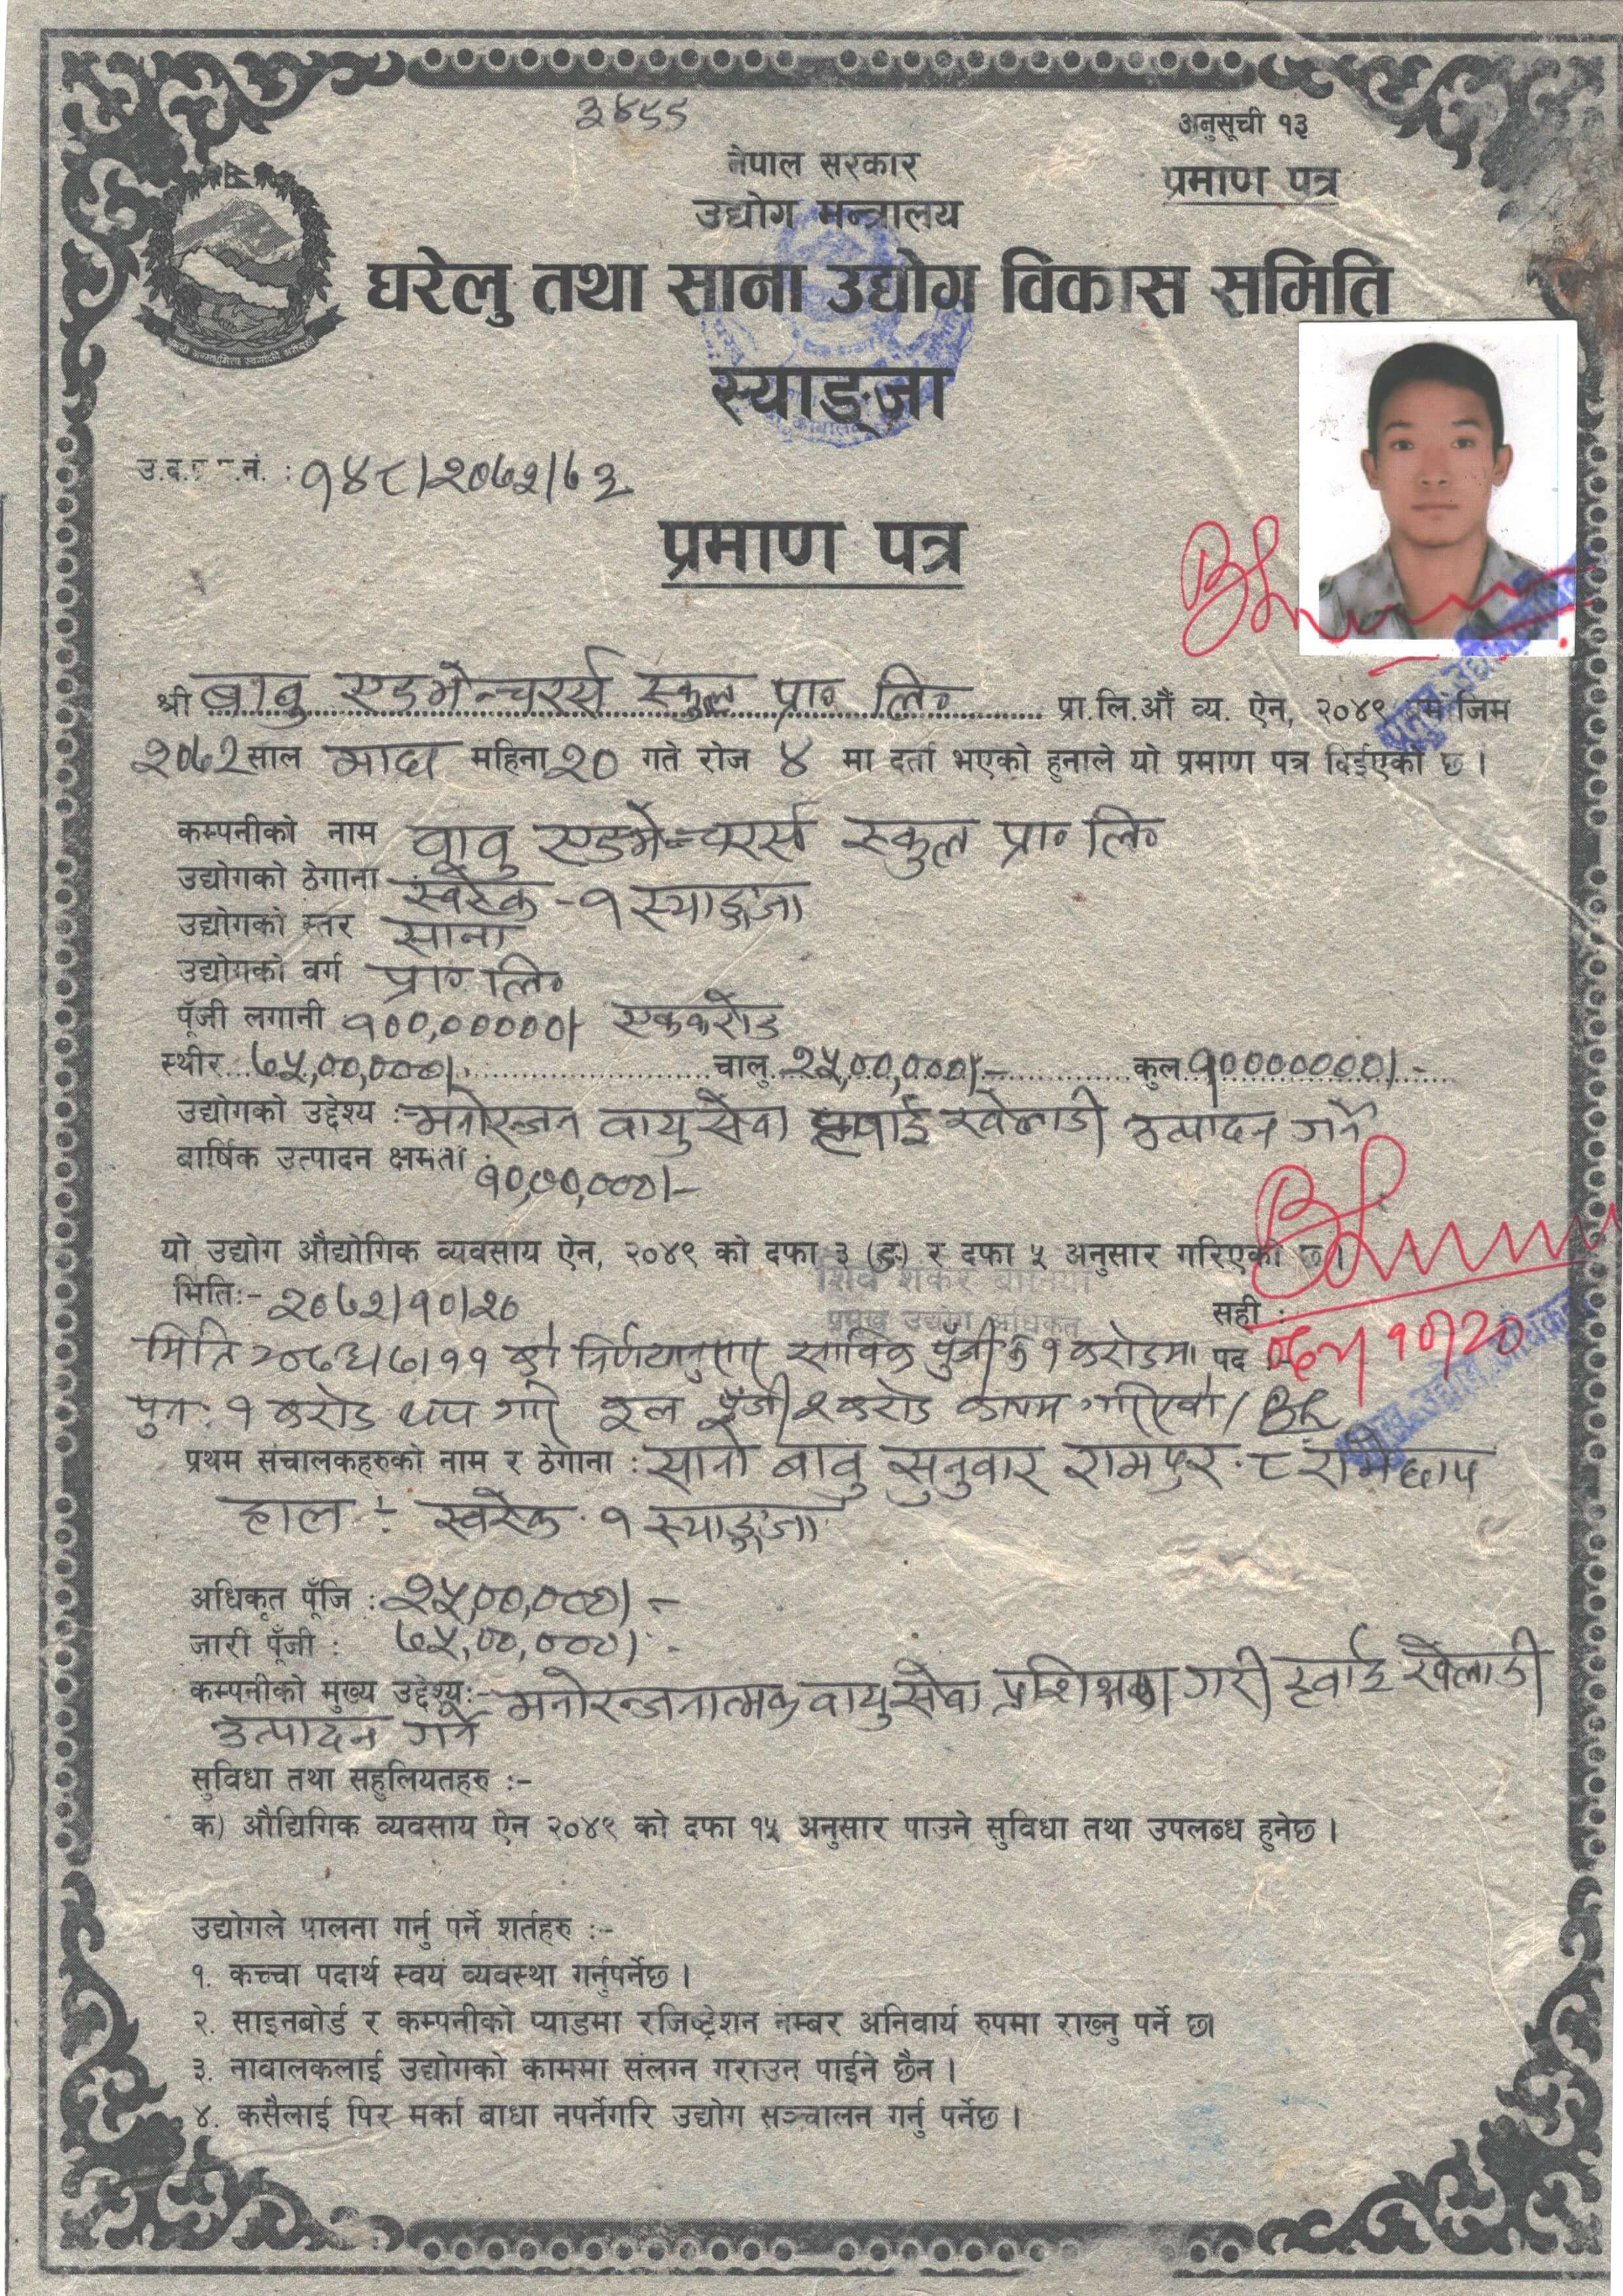 ३४८८
अनुसूची १३
प्रमाण पत्र
नेपाल सरकार
उद्योग मन्त्रालय
घरेलु तथा साना उद्योग विकास समिति
स्याङ्जा
उ.द. .नं. : १४८/२०७२/७३
प्रमाण पत्र
श्री बाबु एडभेन्चरर्स स्कुल प्रा० लि० प्रा.लि.औं व्य. ऐन, २०४९ जिम
२०७२ साल माघ महिना २० गते रोज ४ मा दर्ता भएको हुनाले यो प्रमाण पत्र दिईएको छ ।
कम्पनीको नाम बाबु एडभेन्चरर्स स्कुल प्रा० लि०
उद्योगको ठेगाना स्वरेक - १ स्याङ्जा
उद्योगको स्तर साना
उद्योगको वर्ग प्रा० लि०
पूँजी लगानी १००,०००००/ एक करोड
स्थीर ७५,००,०००/- चालु २५,००,०००/- कुल १०००००००/-
उद्योगको उद्देश्य :- मनोरन्जन वायु सेवा हवाई खेलाडी उत्पादन गर्ने
बार्षिक उत्पादन क्षमता : १०,००,०००/-
यो उद्योग औद्योगिक व्यवसाय ऐन, २०४९ को दफा ३ (ङ) र दफा ५ अनुसार गरिएको छ ।
शिव शंकर बानियाँ
प्रमुख उद्योग अधिकृत
मिति:- २०७२/१०/२०
सही :
मिति २०७३/७/११ को निर्णयानुसार साविक पुँजी रु १ करोडमा पद
पुन: १ करोड थप गरी कुल पुँजी २ करोड कायम गरिएको /
प्रथम संचालकहरुको नाम र ठेगाना : सानो बाबु सुनुवार रामपुर - ८ रामेछाप
हाल :- स्वरेक - १ स्याङ्जा
अधिकृत पूँजि : २५,००,०००/-
जारी पूँजी : ७५,००,०००/-
कम्पनीको मुख्य उद्देश्य:- मनोरन्जनात्मक वायु सेवा प्रशिक्षण गरी हवाई खेलाडी
उत्पादन गर्ने
सुविधा तथा सहुलियतहरु :-
क) औद्यिगिक व्यवसाय ऐन २०४९ को दफा १५ अनुसार पाउने सुविधा तथा उपलब्ध हुनेछ ।
उद्योगले पालना गर्नु पर्ने शर्तहरु :-
१. कच्चा पदार्थ स्वयं व्यवस्था गर्नुपर्नेछ ।
२. साइनबोर्ड र कम्पनीको प्याडमा रजिष्ट्रेशन नम्बर अनिवार्य रुपमा राख्नु पर्ने छ।
३. नावालकलाई उद्योगको काममा संलग्न गराउन पाईने छैन ।
४. कसैलाई पिर मर्का बाधा नपर्नेगरि उद्योग सञ्चालन गर्नु पर्नेछ ।